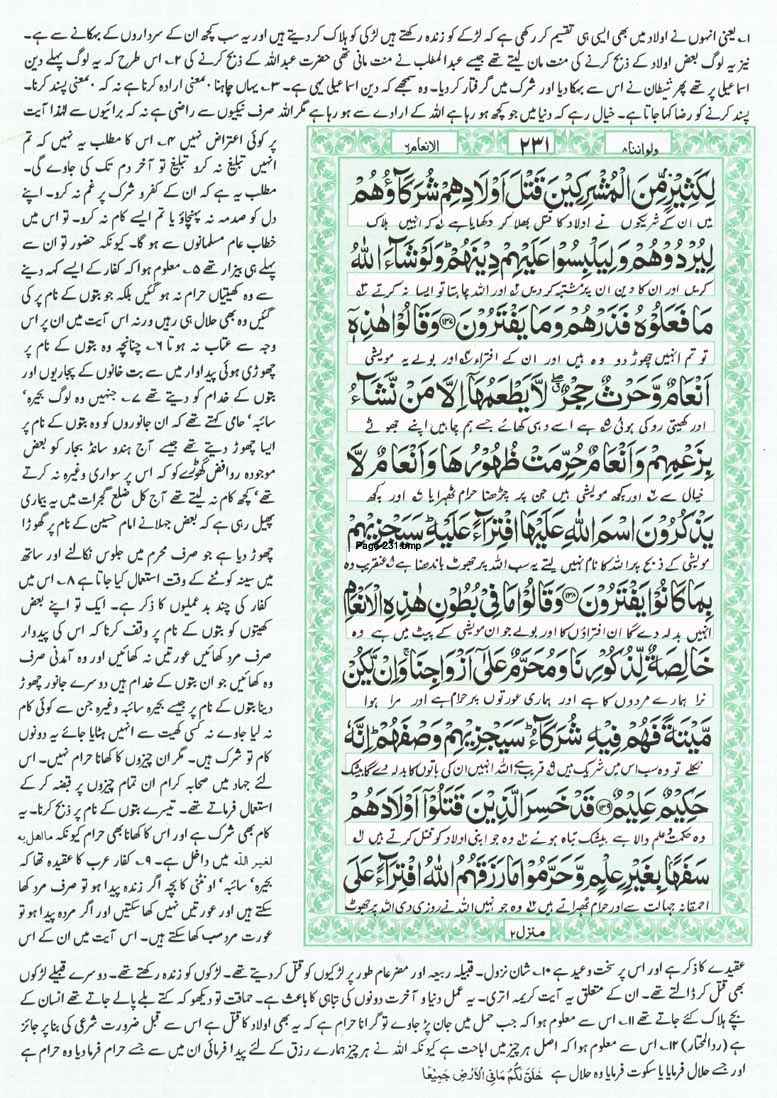 ۱۔ یعنی انہوں نے اولاد میں بھی ایسی ہی تقسیم کر رکھی ہے کہ لڑکے کو زندہ رکھتے ہیں لڑکی کو ہلاک کر دیتے ہیں اور یہ سب کچھ ان کے سرداروں کے بہکانے سے ہے۔
نیز یہ لوگ بعض اولاد کے ذبح کرنے کی منت مان لیتے تھے جیسے عبدالمطلب نے منت مانی تھی حضرت عبداللہ کے ذبح کرنے کی ۲۔ اس طرح کہ یہ لوگ پہلے دین
اسماعیلی پر تھے پھر شیطان نے اس سے بہکا دیا اور شرک میں گرفتار کر دیا۔ وہ سمجھے کہ دین اسماعیلی یہی ہے۔ ۳۔ یہاں چاہنا بمعنی ارادہ کرنا ہے نہ کہ بمعنی پسند کرنا۔
پسند کرنے کو رضا کہا جاتا ہے۔ خیال رہے کہ دنیا میں جو کچھ ہو رہا ہے اللہ کے ارادے سے ہو رہا ہے مگر اللہ صرف نیکیوں سے راضی ہے نہ کہ برائیوں سے لہذا آیت
پر کوئی اعتراض نہیں ۴۔ اس کا مطلب یہ نہیں کہ تم
انہیں تبلیغ نہ کرو تبلیغ تو آخر دم تک کی جاوے گی۔
مطلب یہ ہے کہ ان کے کفر و شرک پر غم نہ کرو۔ اپنے
دل کو صدمہ نہ پہنچاؤ یا تم ایسے کام نہ کرو۔ تو اس میں
خطاب عام مسلمانوں سے ہو گا۔ کیونکہ حضور تو ان سے
پہلے ہی بیزار تھے ۵۔ معلوم ہوا کہ کفار کے ایسے کہہ دینے
سے وہ کھیتیاں حرام نہ ہو گئیں بلکہ جو بتوں کے نام پر کی
گئیں وہ بھی حلال ہی رہیں ورنہ اس آیت میں ان پر اس
وجہ سے عتاب نہ ہوتا ۶۔ چنانچہ وہ بتوں کے نام پر
چھوڑی ہوئی پیداوار میں سے بت خانوں کے پجاریوں اور
بتوں کے خدام کو دیتے تھے ۷۔ جنہیں وہ لوگ بحیرہ'
سائبہ' حامی کہتے تھے کہ ان جانوروں کو وہ بتوں کے نام پر
ایسا چھوڑ دیتے تھے جیسے آج ہندو سانڈ بجار کو بعض
موجودہ روافض گھوڑے کو کہ اس پر سواری وغیرہ نہ کرتے
تھے' کچھ کام نہ لیتے تھے آج کل ضلع گجرات میں یہ بیماری
پھیل رہی ہے کہ بعض جہلا نے امام حسین کے نام پر گھوڑا
چھوڑ دیا ہے جو صرف محرم میں جلوس نکالنے اور ساتھ
میں سینہ کوٹنے کے وقت استعمال کیا جاتا ہے ۸۔ اس میں
کفار کی چند بد عملیوں کا ذکر ہے۔ ایک تو اپنے بعض
کھیتوں کو بتوں کے نام پر وقف کرنا کہ اس کی پیداوار
صرف مرد کھائیں عورتیں نہ کھائیں اور وہ آمدنی صرف
وہ کھائیں جو ان بتوں کے خدام ہیں دوسرے جانور چھوڑ
دینا بتوں کے نام پر جیسے بحیرہ سائبہ وغیرہ جن سے کوئی کام
نہ لیا جاوے نہ کسی کھیت سے انہیں ہٹایا جائے یہ دونوں
کام تو شرک ہیں۔ مگر ان چیزوں کا کھانا حرام نہیں۔ اس
لئے جہاد میں صحابہ کرام ان تمام چیزوں پر قبضہ کر کے
استعمال فرماتے تھے۔ تیسرے بتوں کے نام پر ذبح کرنا۔ یہ
کام بھی شرک ہے اور اس کا کھانا بھی حرام کیونکہ ما اھل بہ
لغیر اللہ میں داخل ہے۔ ۹۔ کفار عرب کا عقیدہ تھا کہ
بحیرہ' سائبہ' اونٹنی کا بچہ اگر زندہ پیدا ہو تو صرف مرد کھا
سکتے ہیں اور عورتیں نہیں کھا سکتیں اور اگر مردہ پیدا ہو تو
عورت مرد سب کھا سکتے ہیں۔ اس آیت میں ان کے اس
ولواننا ۸
۲۳۱
الانعام ۶
لِكَثِيْرٍ مِّنَ الْمُشْرِكِيْنَ قَتْلَ اَوْلَادِهِمْ شُرَكَآؤُهُمْ
میں ان کے شریکوں نے اولاد کا قتل بھلا کر دکھایا ہے ۱ کہ انہیں ہلاک
لِيُرْدُوْهُمْ وَلِيَلْبِسُوْا عَلَيْهِمْ دِيْنَهُمْ ۭ وَلَوْ شَآءَ اللّٰهُ
کریں اور ان کا دین ان پر مشتبہ کر دیں ۲ اور اللہ چاہتا تو ایسا نہ کرتے ۳
مَا فَعَلُوْهُ فَذَرْهُمْ وَمَا يَفْتَرُوْنَ ۝۱۳۷ وَقَالُوْا هٰذِهٖٓ
تو تم انہیں چھوڑ دو وہ ہیں اور ان کے افتراء ۴ اور بولے یہ مویشی
اَنْعَامٌ وَّحَرْثٌ حِجْرٌ ۖ لَّا يَطْعَمُهَآ اِلَّا مَنْ نَّشَآءُ
اور کھیتی روکی ہوئی ۵ ہے اسے وہی کھائے جسے ہم چاہیں اپنے جھوٹے
بِزَعْمِهِمْ وَاَنْعَامٌ حُرِّمَتْ ظُهُوْرُهَا وَاَنْعَامٌ لَّا
خیال سے ۶ اور کچھ مویشی ہیں جن پر چڑھنا حرام ٹھہرایا ۷ اور کچھ
يَذْكُرُوْنَ اسْمَ اللّٰهِ عَلَيْهَا افْتِرَآءً عَلَيْهِ ۭ سَيَجْزِيْهِمْ
Page-231.bmp
مویشی کے ذبح پر اللہ کا نام نہیں لیتے یہ سب اللہ پر جھوٹ باندھنا ہے ۸ عنقریب وہ
بِمَا كَانُوْا يَفْتَرُوْنَ ۝۱۳۸ وَقَالُوْا مَا فِيْ بُطُوْنِ هٰذِهِ الْاَنْعَامِ
انہیں بدلہ دے گا ان افتراؤں کا اور بولے جو ان مویشی کے پیٹ میں ہے وہ
خَالِصَةٌ لِّذُكُوْرِنَا وَمُحَرَّمٌ عَلٰٓى اَزْوَاجِنَا ۚ وَاِنْ يَّكُنْ
نرا ہمارے مردوں کا ہے اور ہماری عورتوں پر حرام ہے اور مرا ہوا
مَّيْتَةً فَهُمْ فِيْهِ شُرَكَآءُ ۭ سَيَجْزِيْهِمْ وَصْفَهُمْ ۭ اِنَّهٗ
نکلے تو وہ سب اس میں شریک ہیں ۹ قریب ہے اللہ انہیں ان کی باتوں کا بدلہ دے گا بیشک
حَكِيْمٌ عَلِيْمٌ ۝۱۳۹ قَدْ خَسِرَ الَّذِيْنَ قَتَلُوْٓا اَوْلَادَهُمْ
وہ حکمت و علم والا ہے بیشک تباہ ہوئے ۱۰ وہ جو اپنی اولاد کو قتل کرتے ہیں ۱۱
سَفَهًۢا بِغَيْرِ عِلْمٍ وَّحَرَّمُوْا مَا رَزَقَهُمُ اللّٰهُ افْتِرَآءً عَلَى
احمقانہ جہالت سے اور حرام ٹھہراتے ہیں ۱۲ وہ جو انہیں اللہ نے روزی دی اللہ پر جھوٹ
منزل ۲
عقیدے کا ذکر ہے اور اس پر سخت وعید ہے ۱۰۔ شان نزول۔ قبیلہ ربیعہ اور مضر عام طور پر لڑکیوں کو قتل کر دیتے تھے۔ لڑکوں کو زندہ رکھتے تھے۔ دوسرے قبیلے لڑکوں
بھی قتل کر ڈالتے تھے۔ ان کے متعلق یہ آیت کریمہ اتری۔ یہ عمل دنیا و آخرت دونوں کی تباہی کا باعث ہے۔ حماقت تو دیکھو کہ کتے بلے پالے جاتے تھے انسان کے
بچے ہلاک کئے جاتے تھے ۱۱۔ اس سے معلوم ہوا کہ جب حمل میں جان پڑ جاوے تو گرانا حرام ہے کہ یہ بھی اولاد کا قتل ہے اس سے قبل ضرورت شرعی کی بنا پر جائز
ہے (ردالمختار) ۱۲۔ اس سے معلوم ہوا کہ اصل ہر چیز میں اباحت ہے کیونکہ اللہ نے ہر چیز ہمارے رزق کے لئے پیدا فرمائی ان میں سے جسے حرام فرما دیا وہ حرام ہے
اور جسے حلال فرمایا یا سکوت فرمایا وہ حلال ہے خَلَقَ لَكُمْ مَا فِي الْاَرْضِ جَمِيْعًا